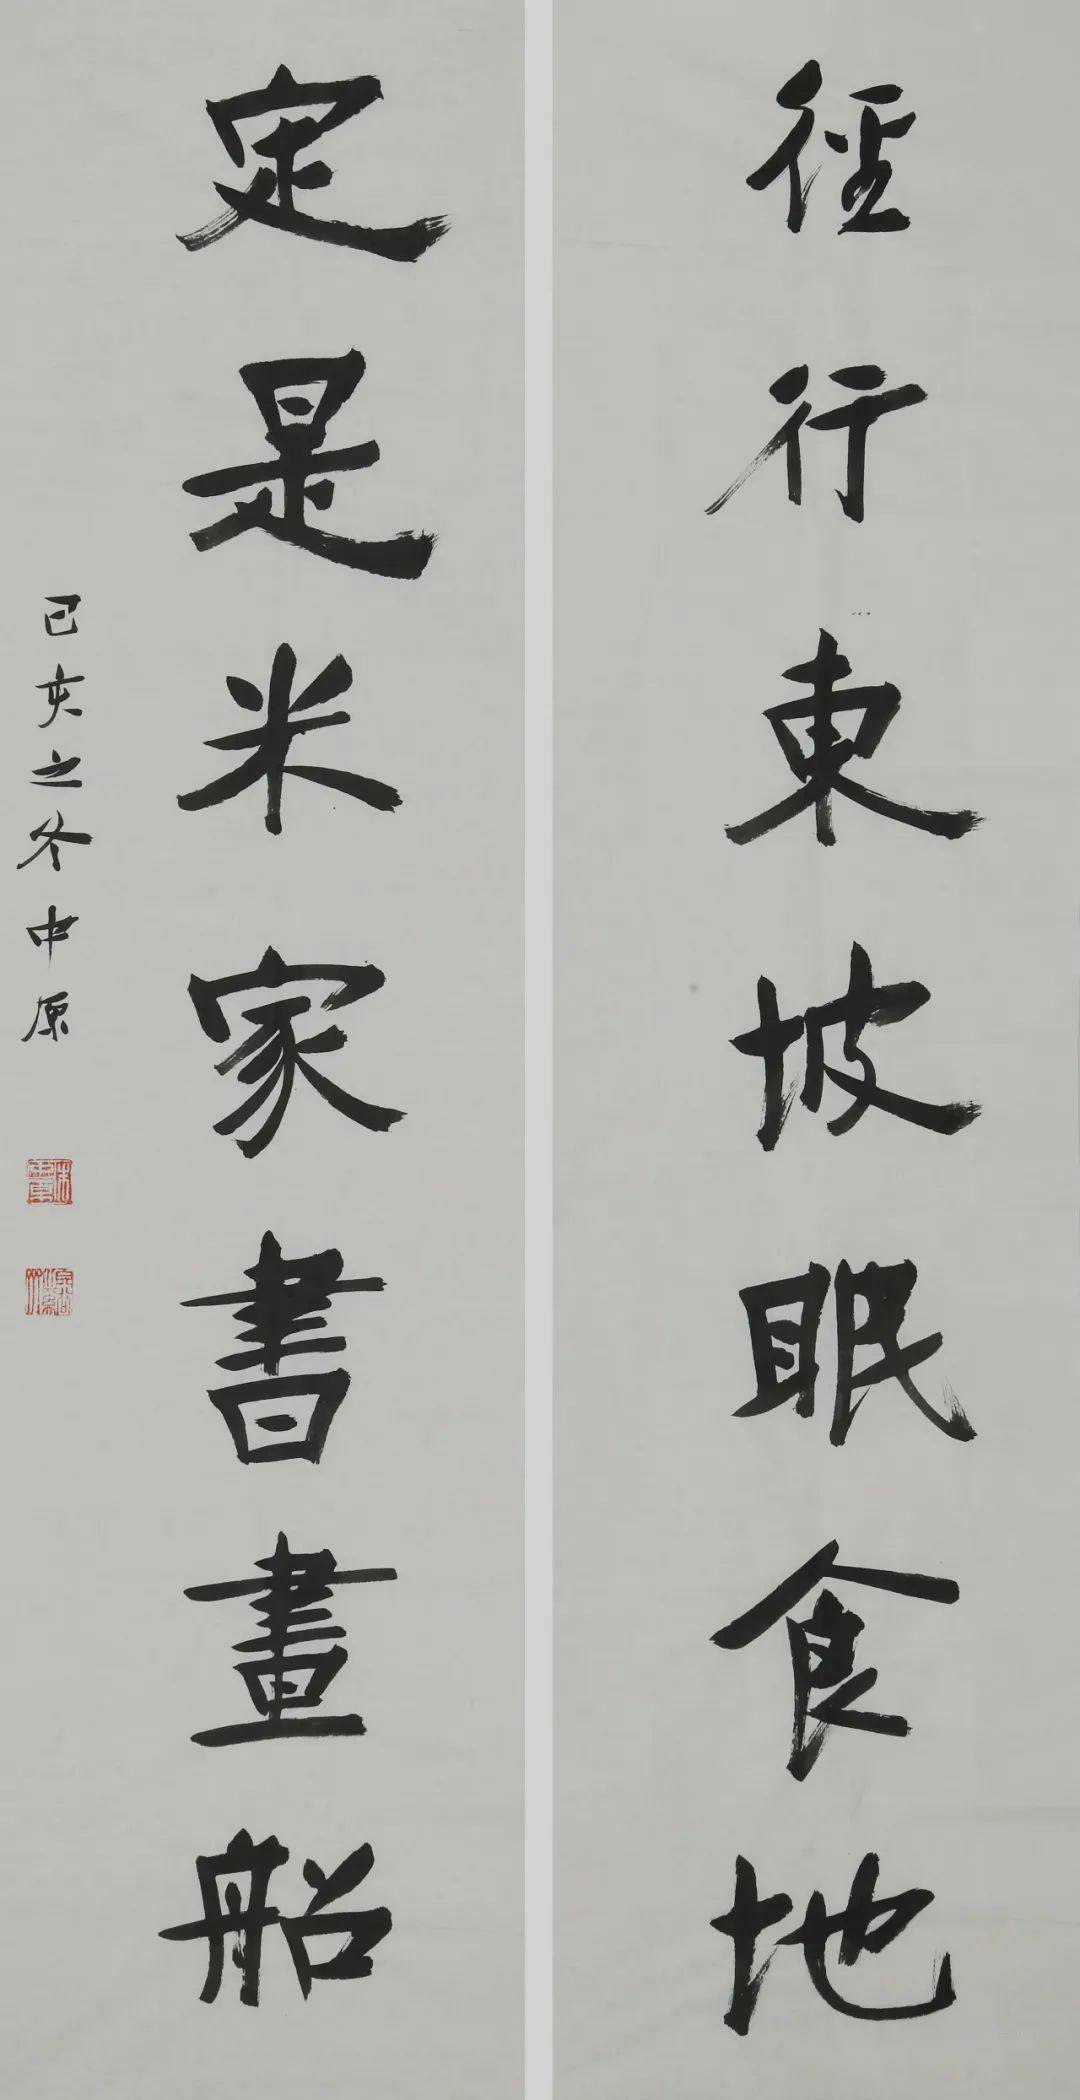 徑行東坡眠食地
定是米家書畫船
己亥之冬中原